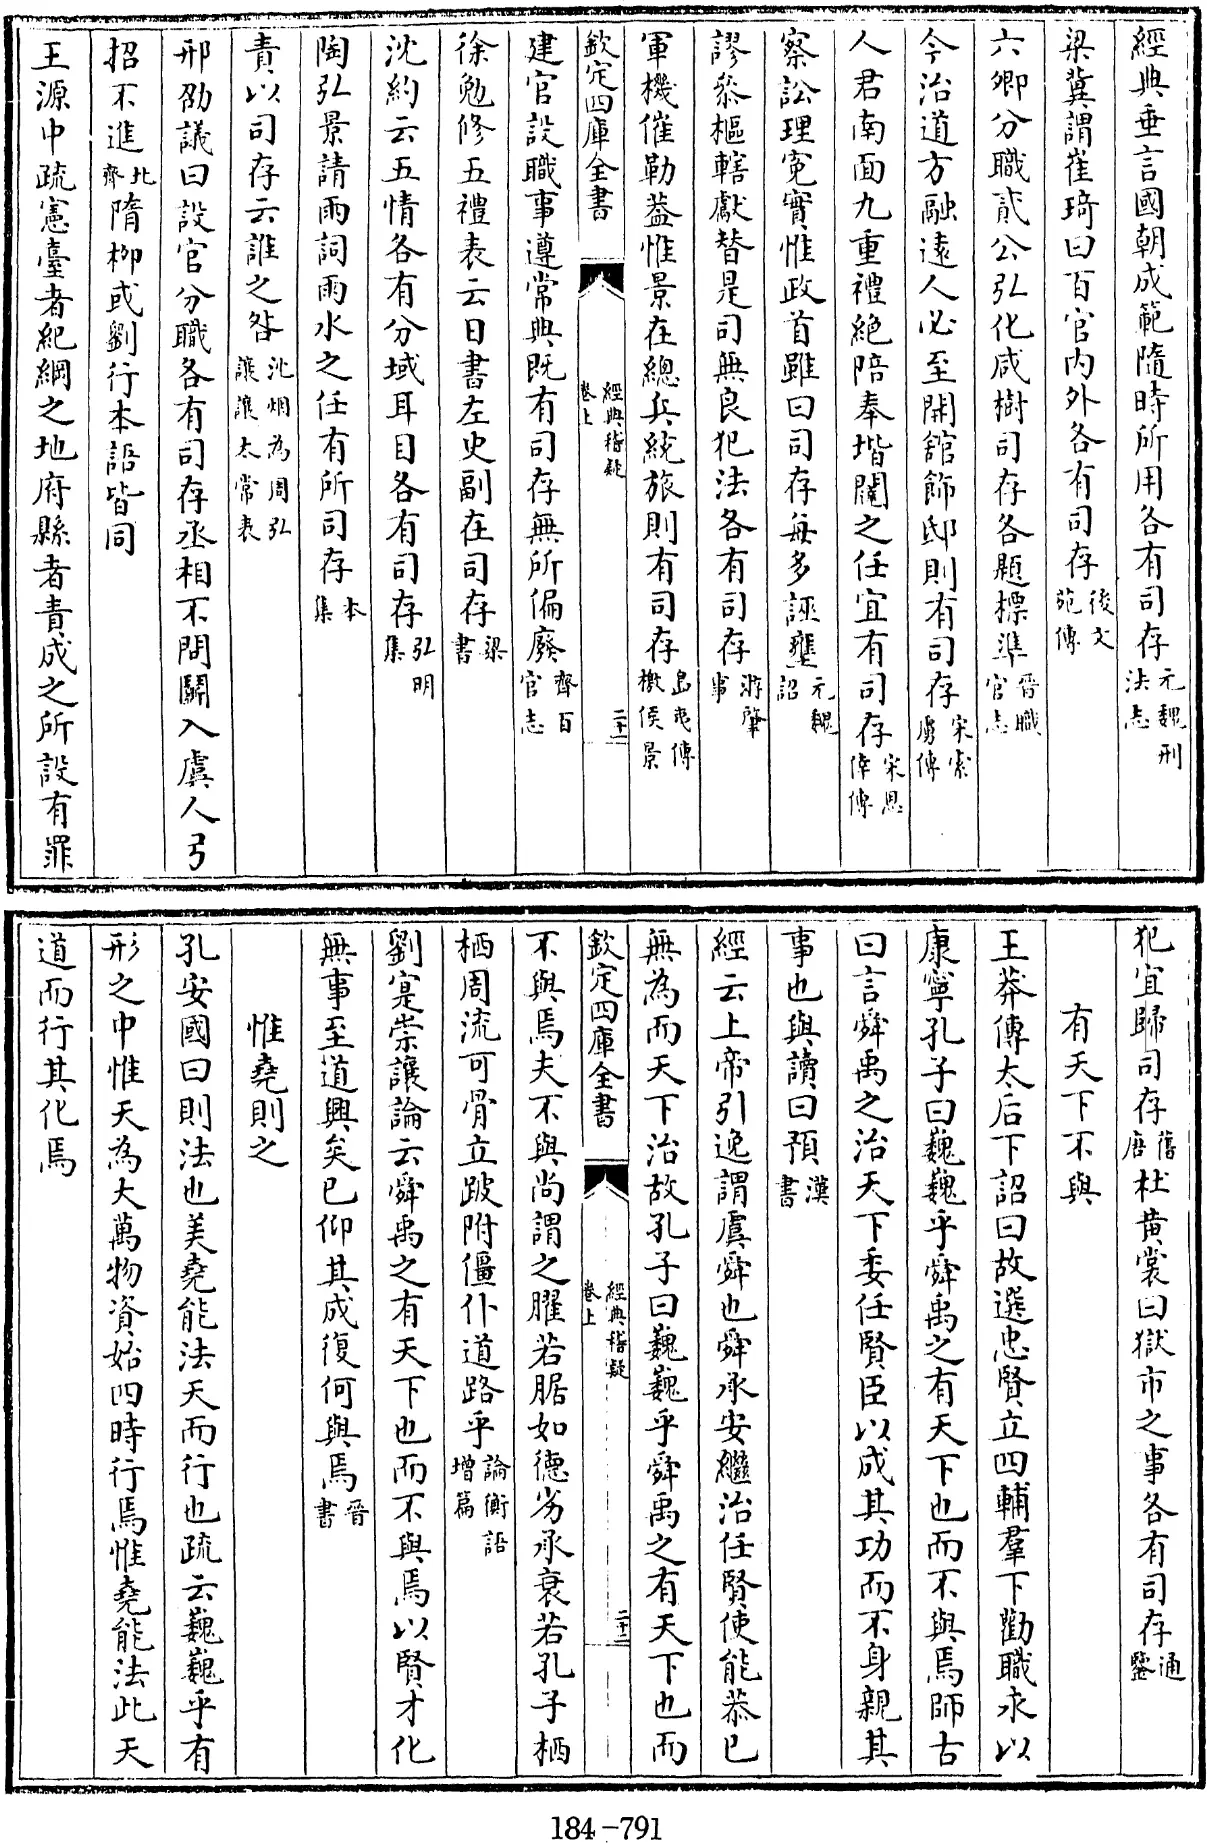 經典垂言國朝成範隨時所用各有司存元魏刑法志
梁冀謂崔琦曰百官内外各有司存後文苑傳
六卿分職貳公弘化咸樹司存各題標準晉職官志
今治道方融遠人必至開館飾邸則有司存宋索虜傳
人君南面九重禮絶陪奉堦闥之任宜有司存宋恩倖傳
察訟理寃實惟政首雖曰司存每多誣壅元魏詔
謬叅樞轄獻替是司無良犯法各有司存游肇事
軍機催勒葢惟景在總兵統旅則有司存島夷傳檄侯景
欽定四庫全書 經典稽疑卷上 二十一
建官設職事遵常典既有司存無所偏廢齊百官志
徐勉修五禮表云日書左史副在司存梁書
沈約云五情各有分域耳目各有司存弘明集
陶弘景請雨詞雨水之任有所司存本集
責以司存云誰之咎沈烱為周弘讓讓太常表
邢劭議曰設官分職各有司存丞相不問鬬人虞人弓
招不進北齊隋柳或劉行本語皆同
王源中疏憲臺者紀綱之地府縣者責成之所設有罪
犯宜歸司存舊唐杜黄裳曰獄市之事各有司存通鑒
有天下不與
王莽傳太后下詔曰故選忠賢立四輔羣下勸職永以
康寧孔子曰巍巍乎舜禹之有天下也而不與焉師古
曰言舜禹之治天下委任賢臣以成其功而不身親其
事也與讀曰預漢書
經云上帝引逸謂虞舜也舜承安繼治任賢使能恭已
無為而天下治故孔子曰巍巍乎舜禹之有天下也而
欽定四庫全書 經典稽疑卷上 二十二
不與焉夫不與尚謂之臞若腒如德劣承衰若孔子栖
栖周流可骨立跛附僵仆道路乎論衡語增篇
劉寔崇讓論云舜禹之有天下也而不與焉以賢才化
無事至道興矣已仰其成復何與焉晉書
惟堯則之
孔安國曰則法也美堯能法天而行也疏云巍巍乎有
形之中惟天為大萬物資始四時行焉惟堯能法此天
道而行其化焉
184-791